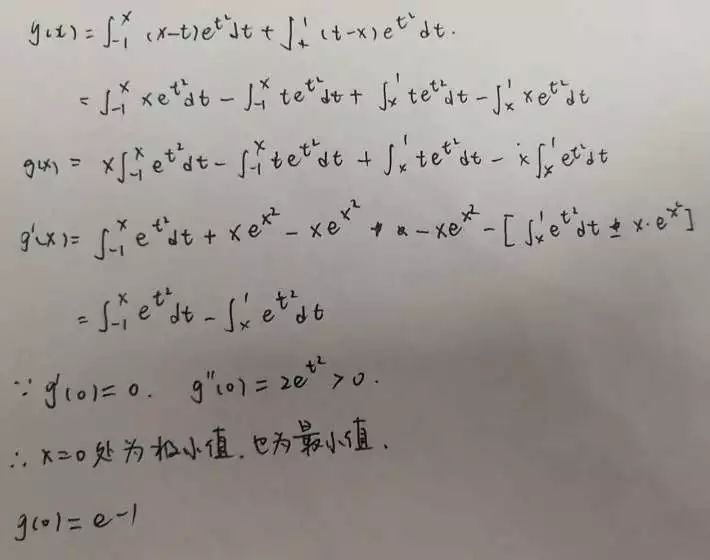 g(x) = ∫₋₁ˣ (x-t)e^{t²}dt + ∫ₓ¹ (t-x)e^{t²}dt.
= ∫₋₁ˣ xe^{t²}dt - ∫₋₁ˣ te^{t²}dt + ∫ₓ¹ te^{t²}dt - ∫ₓ¹ xe^{t²}dt
g(x) = x∫₋₁ˣ e^{t²}dt - ∫₋₁ˣ te^{t²}dt + ∫ₓ¹ te^{t²}dt - x∫ₓ¹ e^{t²}dt
g'(x) = ∫₋₁ˣ e^{t²}dt + xe^{x²} - xe^{x²} - xe^{x²} - [∫ₓ¹ e^{t²}dt ± x·e^{x²}]
= ∫₋₁ˣ e^{t²}dt - ∫ₓ¹ e^{t²}dt
∵ g'(0) = 0. g''(0) = 2e^{t²} > 0.
∴ x=0处为极小值.也为最小值.
g(0) = e-1